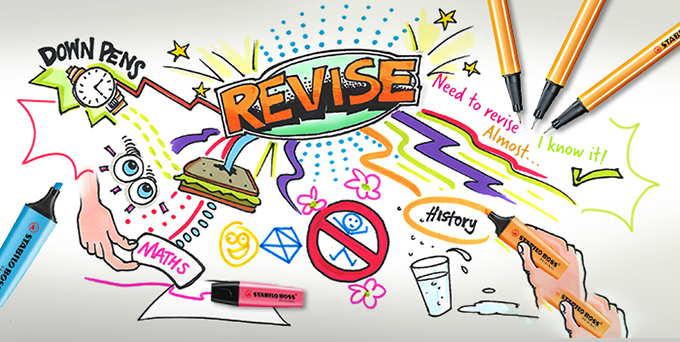 DOWN PENS
REVISE
Need to revise
Almost...
I know it!
History
MATHS
STABILO BOSS
STABILO BOSS
STABILO BOSS
STABILO BOSS
STABILO